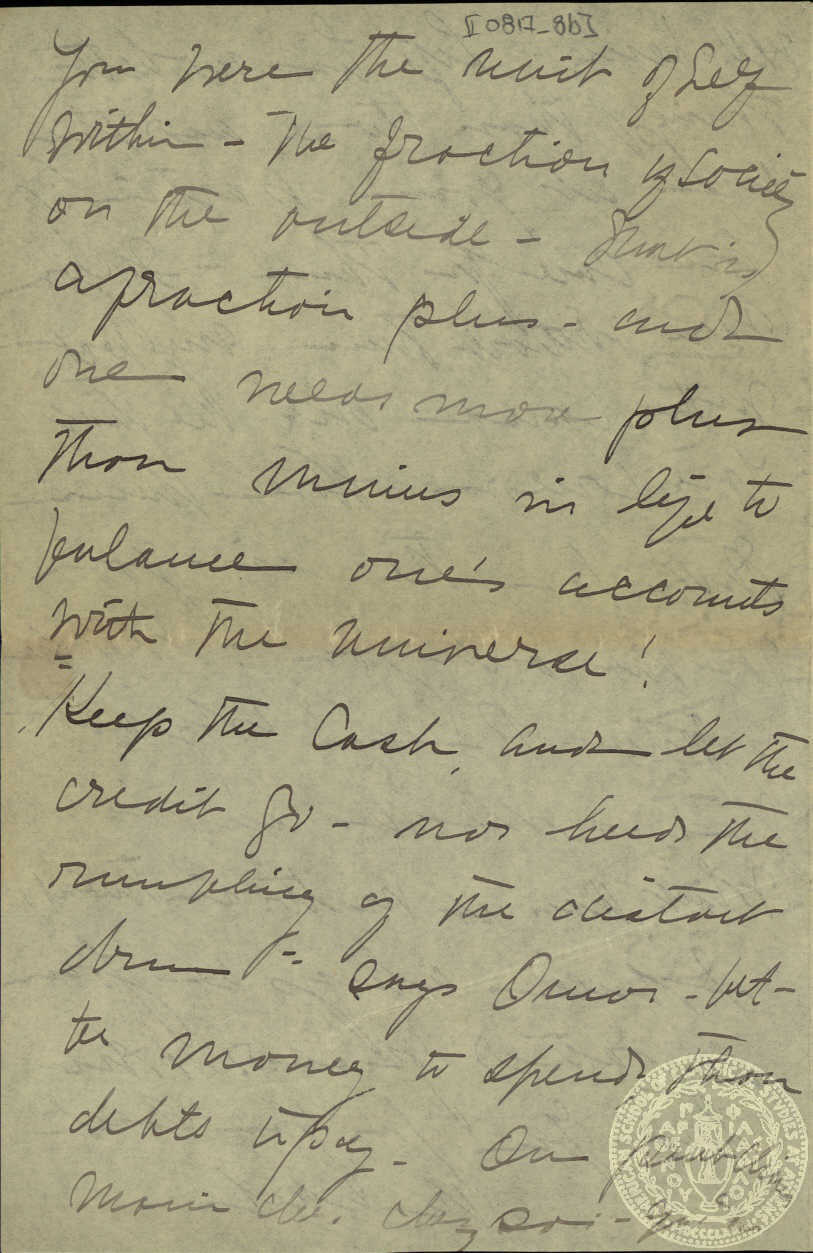 [081-8b]
You were the unit of self
within - the fraction of society
on the outside - that is
a fraction plus - and
one needs more plus
than minus in life to
balance one's accounts
with the universe!
"Keep the Cash, and let the
credit go - nor heed the
rumbling of the distant
drum" - says Omar - bet-
ter money to spend than
debts to pay. On
moin